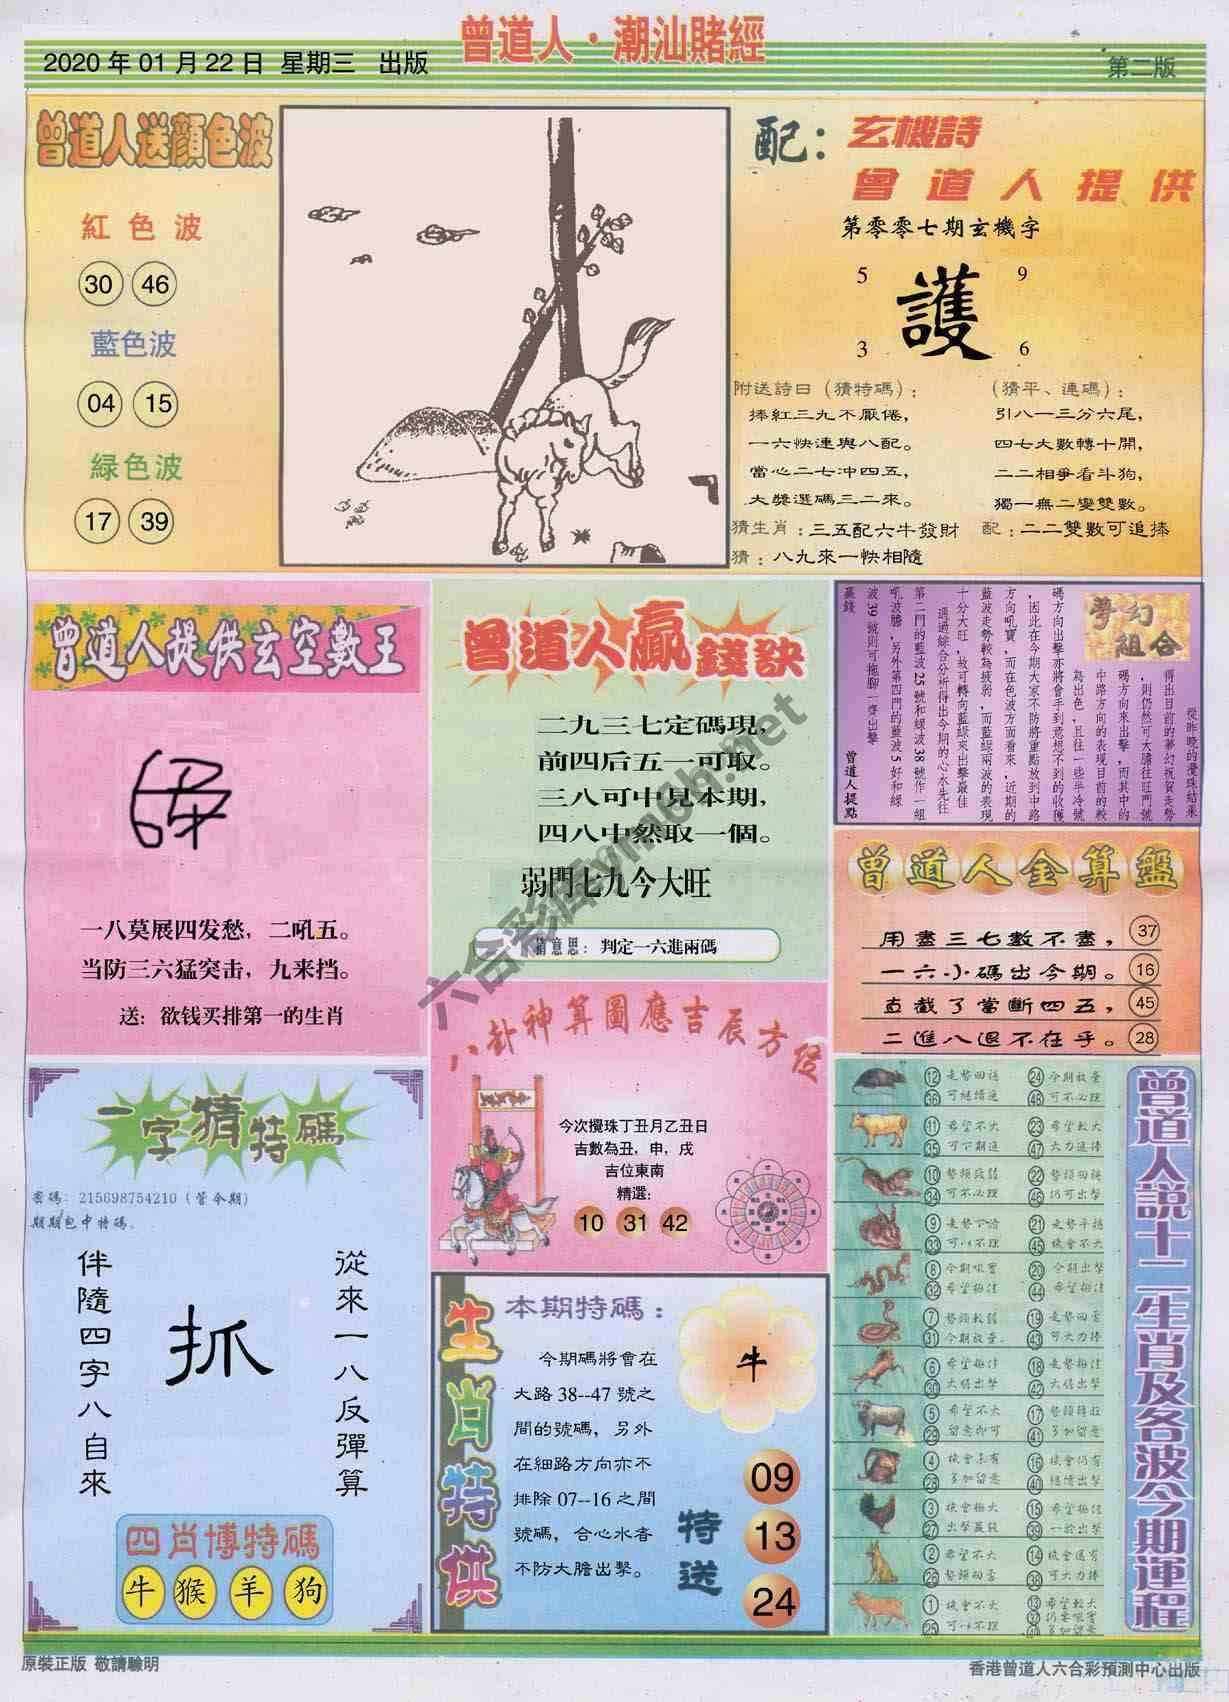 2020年01月22日 星期三 出版
曾道人·潮汕賭經
第二版
曾道人送顏色波
紅色波
30 46
藍色波
04 15
綠色波
17 39
配：玄機詩
曾道人提供
第零零七期玄機字
5 9
護
3 6
附送詩曰（猜特碼）：
捧紅三九不厭倦，
一六快連與八配。
當心二七冲四五，
大獎選碼三二來。
（猜平、連碼）：
引八一三分六尾，
四七大數轉十開，
二二相爭看斗狗，
獨一無二變雙數。
猜生肖：三五配六牛發財
配：二二雙數可追捧
猜：八九來一快相隨
曾道人提供玄空數王
一八莫展四发愁，二吼五。
当防三六猛突击，九来挡。
送：欲钱买排第一的生肖
曾道人贏錢訣
二九三七定碼現，
前四后五一可取。
三八可中見本期，
四八中然取一個。
弱門七九今大旺
猜意思：判定一六進兩碼
夢幻組合
從昨晚的攪珠結果
得出目前的夢幻祝賀走勢
，則仍然可大膽往旺門號
碼方向來出擊，而其中的
中路方向的表現目前的較
為出色，且往一些半冷號
碼方向出擊亦將會手到意想不到的收穫
，因此在今期大家不防將重點放到中路
方向吼寶，而在色波方面看來，近期的
藍波走勢較為疲弱，而藍綠兩波的表現
十分大旺，故可轉向藍綠來出擊最佳
通過綜合分析得出今期的心水先往
第二門的藍波25號和綠波38號作一組
吼波膽，另外第四門的藍波5好和綠
波39號則可拖腳一齊出擊
贏錢
曾道人提點
曾道人金算盤
用盡三七數不盡，37
一六小碼出今期。16
直截了當斷四五，45
二進八退不在乎。28
八卦神算圖應吉辰方位
今次攪珠丁丑月乙丑日
吉數為丑，申，戌
吉位東南
精選：
10 31 42
一字猜特碼
密碼：215698754210（管今期）
期期包中特碼。
從來一八反彈算
抓
伴隨四字八自來
四肖博特碼
牛 猴 羊 狗
生肖特供
本期特碼：
今期碼將會在
大路38--47號之
間的號碼，另外
在細路方向亦不
排除07--16之間
號碼，合心水者
不防大膽出擊。
牛
特送
09
13
24
曾道人説十二生肖及各波今期運程
12 36 24 48
可繼續追 可不必理
11 35 23 47
希望不大 希望較大
可下期追 大力追捧
10 34 22 46
可不必理 仍可出擊
9 33 21 45
機會不大
8 32 20 44
今期出擊
7 31 19 43
可大力捧
6 30 18 42
大膽出擊 大膽出擊
5 29 17 41
希望不大
留意即可 多加留意
4 28 16 40
機會未有 機會仍有
多加留意 繼續出擊
3 27 15 39
機會極大 希望極佳
出擊贏錢
2 26 14 38
希望不大 機會還有
可大力捧
1 25 13 37 49
機會不大 希望較大
六合彩圖ym8h.net
原裝正版 敬請驗明
香港曾道人六合彩預測中心出版